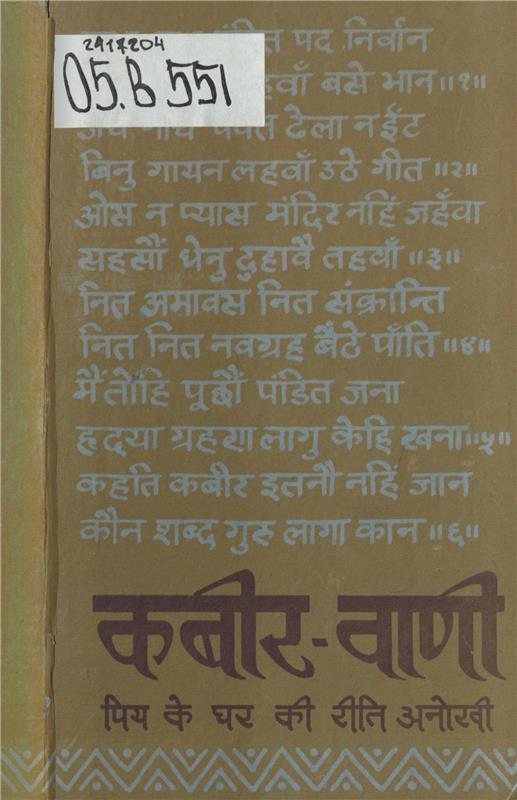 2917204
05.B 551
पद निर्वान
बसे भान॥१॥
ढेला न ईंट
बिनु गायन लहवाँ उठे गीत॥२॥
ओस न प्यास मंदिर नहिं जहँवा
सहसौं धेनु दुहावै तहवाँ॥३॥
नित अमावस नित संक्रान्ति
नित नित नवग्रह बैठे पाँति॥४॥
मैं तोहि पूछौं पंडित जना
हृदया ग्रहण लागु केहि खना॥५॥
कहति कबीर इतनौ नहिं जान
कौन शब्द गुरु लागा कान॥६॥
कबीर-वाणी
पिय के घर की रीति अनोखी